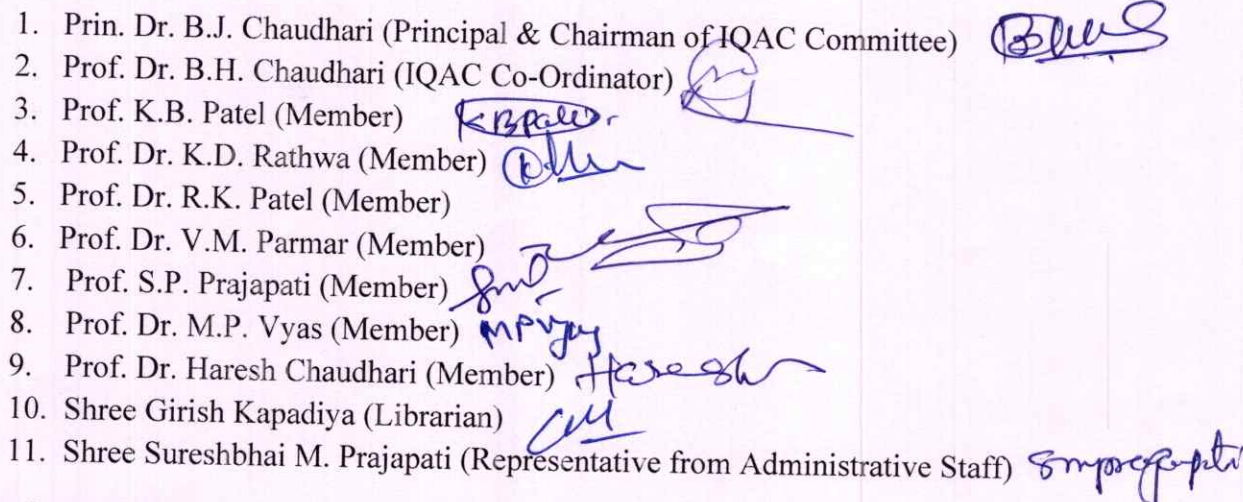 1. Prin. Dr. B.J. Chaudhari (Principal & Chairman of IQAC Committee)
2. Prof. Dr. B.H. Chaudhari (IQAC Co-Ordinator)
3. Prof. K.B. Patel (Member) KBPatel
4. Prof. Dr. K.D. Rathwa (Member)
5. Prof. Dr. R.K. Patel (Member)
6. Prof. Dr. V.M. Parmar (Member)
7. Prof. S.P. Prajapati (Member)
8. Prof. Dr. M.P. Vyas (Member) MPVyas
9. Prof. Dr. Haresh Chaudhari (Member) Haresh
10. Shree Girish Kapadiya (Librarian)
11. Shree Sureshbhai M. Prajapati (Representative from Administrative Staff) Smprajapati